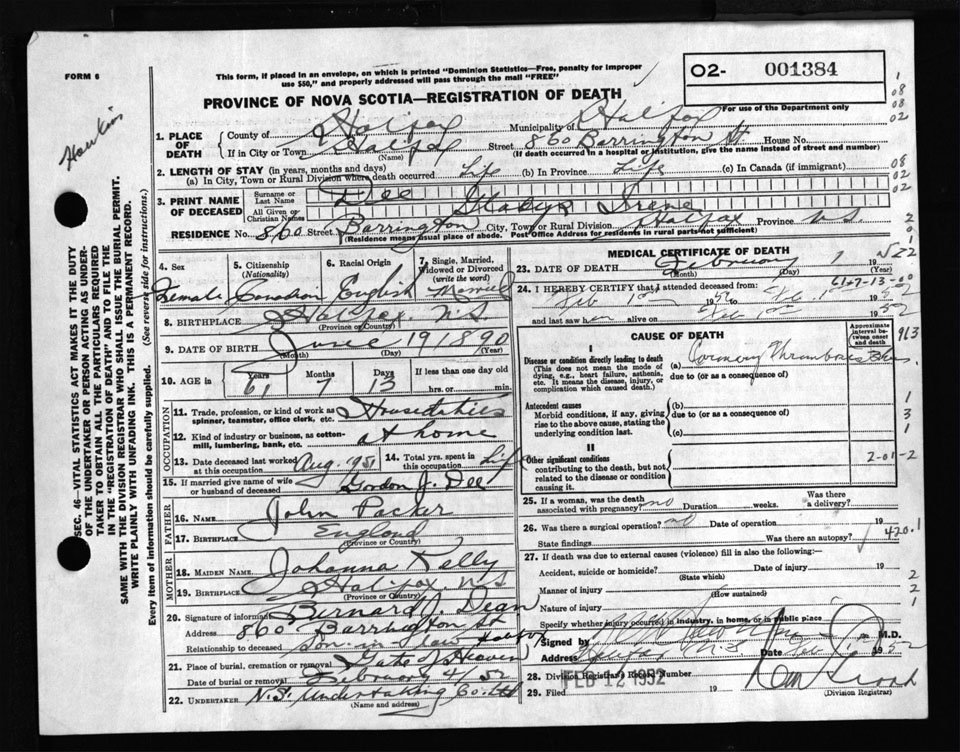 FORM 6
This form, if placed in an envelope, on which is printed "Dominion Statistics—Free, penalty for improper
use $50," and properly addressed will pass through the mail "FREE"
O2- 001384
For use of the Department only
PROVINCE OF NOVA SCOTIA—REGISTRATION OF DEATH
1. PLACE OF DEATH
County of Halifax
Municipality of Halifax
If in City or Town Halifax (Name)
Street 860 Barrington St House No.
(If death occurred in a hospital or institution, give the name instead of street and number)
2. LENGTH OF STAY (in years, months and days)
(a) In City, Town or Rural Division where death occurred Life (b) In Province Life (c) In Canada (if immigrant)
3. PRINT NAME OF DECEASED
Surname or Last Name Dee
All Given or Christian Names Gladys Irene
RESIDENCE No. 860 Street Barrington City, Town or Rural Division Halifax Province N.S.
(Residence means usual place of abode. Post Office Address for residents in rural parts not sufficient)
4. Sex
Female
5. Citizenship (Nationality)
Canadian
6. Racial Origin
English
7. Single, Married, Widowed or Divorced (write the word)
Married
8. BIRTHPLACE Halifax, N.S.
(Province or Country)
9. DATE OF BIRTH June 19 1890
(Month) (Day) (Year)
10. AGE in
Years Months Days If less than one day
61 7 13 hrs. or min.
OCCUPATION
11. Trade, profession, or kind of work as spinner, teamster, office clerk, etc. Houseduties
12. Kind of industry or business, as cotton-mill, lumbering, bank, etc. at home
13. Date deceased last worked at this occupation Aug 1951
14. Total yrs. spent in this occupation Life
15. If married give name of wife or husband of deceased Gordon J. Dee
FATHER
16. Name John Packer
17. Birthplace England
(Province or Country)
MOTHER
18. MAIDEN NAME Johanna Kelly
19. BIRTHPLACE Halifax N.S
(Province or Country)
20. Signature of informant Bernard J. Dean
Address 860 Barrington St Halifax
Relationship to deceased Son in law
21. Place of burial, cremation or removal Gate of Heaven
Date of burial or removal February 4/52
22. UNDERTAKER N.S. Undertaking Co. Ltd
(Name and address)
MEDICAL CERTIFICATE OF DEATH
23. DATE OF DEATH February 1 1952
(Month) (Day) (Year)
24. I HEREBY CERTIFY that I attended deceased from:
61-7-13-00
Feb 1 1952 to Feb 1 1952
and last saw her alive on Feb 1 1952
CAUSE OF DEATH
Approximate interval between onset and death
I
Disease or condition directly leading to death
(This does not mean the mode of dying, e.g., heart failure, asthenia, etc. It means the disease, injury, or complication which caused death.
(a) Coronary Thrombosis
due to (or as a consequence of)
Antecedent causes
Morbid conditions, if any, giving rise to the above cause, stating the underlying condition last.
(b)
due to (or as a consequence of)
(c)
II
Other significant conditions
contributing to the death, but not related to the disease or condition causing it.
2-01-2
25. If a woman, was the death associated with pregnancy? no Duration weeks. Was there a delivery?
26. Was there a surgical operation? no Date of operation 19
State findings Was there an autopsy? 420.1
27. If death was due to external causes (violence) fill in also the following:—
Accident, suicide or homicide? Date of injury 19
(State which)
Manner of injury
(How sustained)
Nature of injury
Specify whether injury occurred in industry, in home, or in public place
Signed by M.D.
Address Halifax N.S Date Feb 1952
28. Division Registrar's Record Number
29. Filed FEB 12 1952 19
(Division Registrar)
SEC. 46—VITAL STATISTICS ACT MAKES IT THE DUTY
OF THE UNDERTAKER OR PERSON ACTING AS UNDER-
TAKER TO OBTAIN ALL THE PARTICULARS REQUIRED
IN THE "REGISTRATION OF DEATH" AND TO FILE THE
SAME WITH THE DIVISION REGISTRAR WHO SHALL ISSUE THE BURIAL PERMIT.
WRITE PLAINLY WITH UNFADING INK. THIS IS A PERMANENT RECORD.
Every item of information should be carefully supplied. (See reverse side for instructions.)